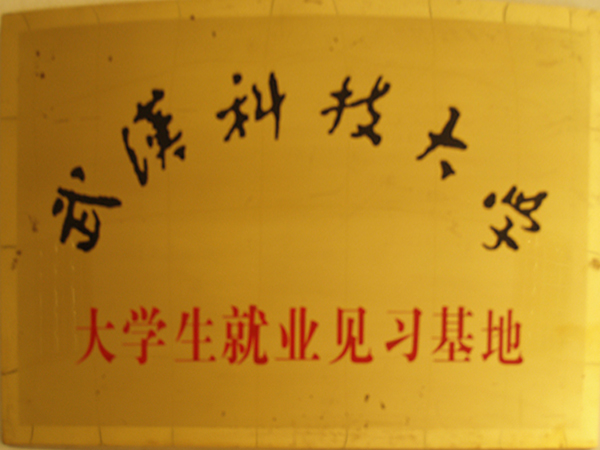 武漢科技大学
大学生就业见习基地